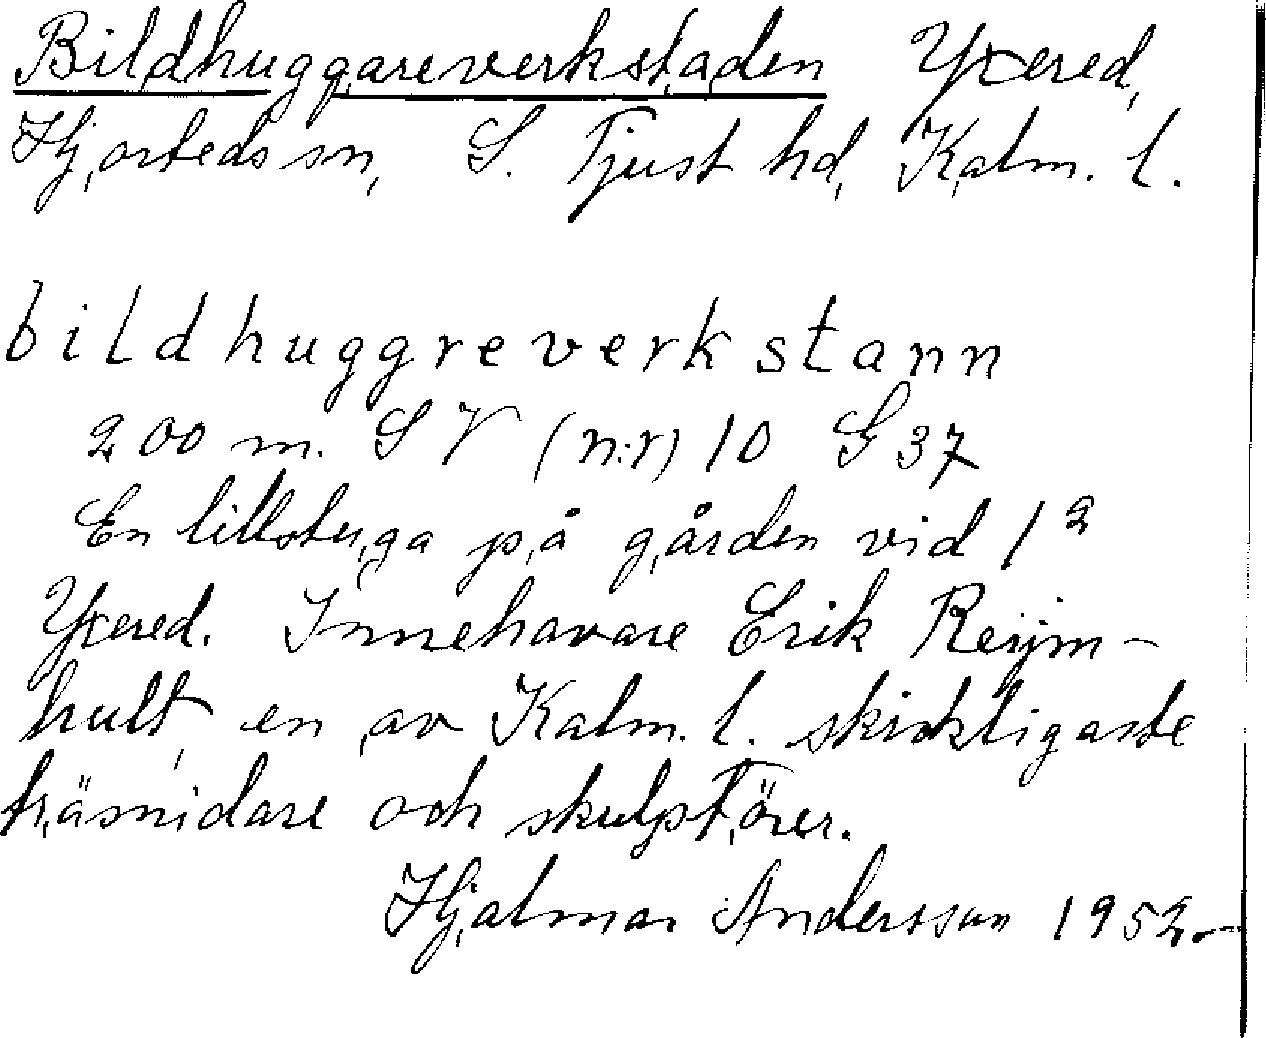 Bildhuggareverkstaden Yxered,
Hjorteds sn, S. Tjust hd, Kalm. l.
bildhuggreverkstann
200 m. SV (n:r) 10 G 37
En lillstuga på gården vid 1²
Yxered. Innehavare Erik Reijm-
hult, en av Kalm. l. skickligaste
träsnidare och skulptörer.
Hjalmar Andersson 1952